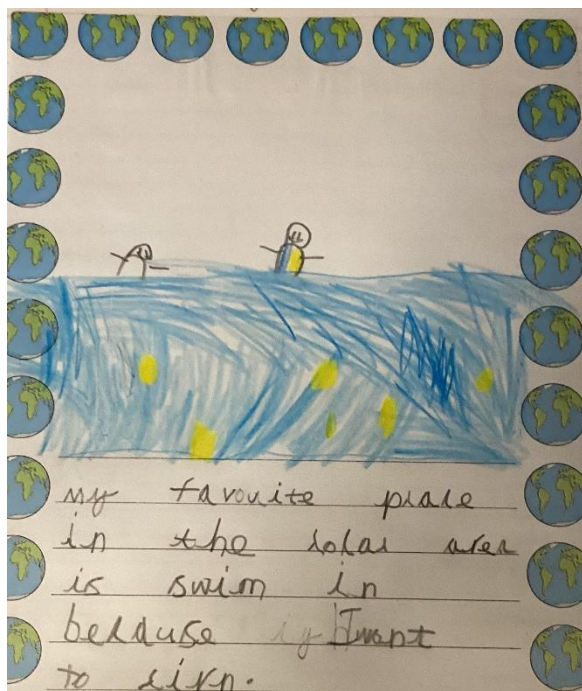 my favouite place
in the local area
is swim in
because I want
to